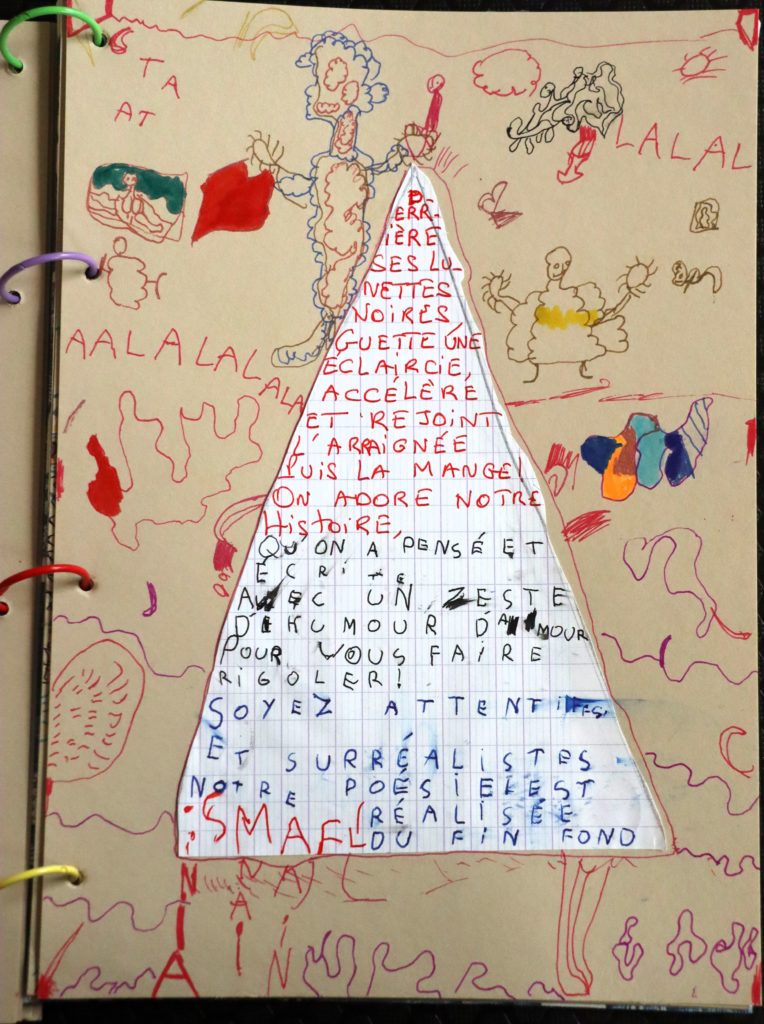 TA
AT
LALAL
D-
ERR-
IÈRE
SES LU-
NETTES
NOIRES
GUETTE UNE
ECLAIRCIE,
ACCÉLÈRE
ET REJOINT
L'ARRAIGNÉE
PUIS LA MANGE!
ON ADORE NOTRE
HISTOIRE,
AALALALALA
QU'ON A PENSÉ ET
ECRITE
AVEC UN ZESTE
D'HUMOUR D'AMOUR
POUR VOUS FAIRE
RIGOLER!
SOYEZ ATTENTIFES,
ET SURRÉALISTES
NOTRE POÉSIE EST
RÉALISÉE
DU FIN FOND
ISMAEL